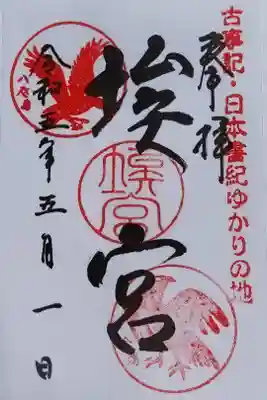 古事記・日本書紀ゆかりの地
奉拝
埃宮
埃宮
八咫烏
令和五年五月一日